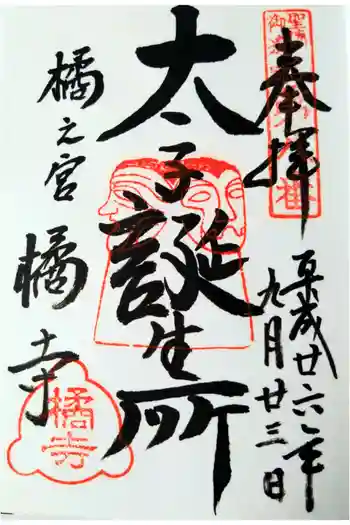 奉拝
平成廿六年
九月廿三日
太子誕生所
橘之宮
橘寺
橘寺